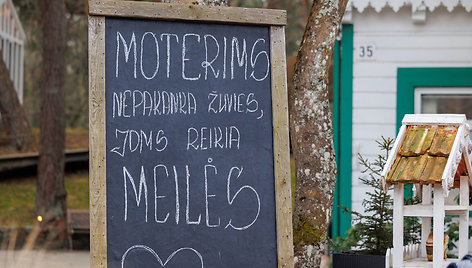 MOTERIMS
NEPAKANKA ŽUVIES,
JOMS REIKIA
MEILĖS
35